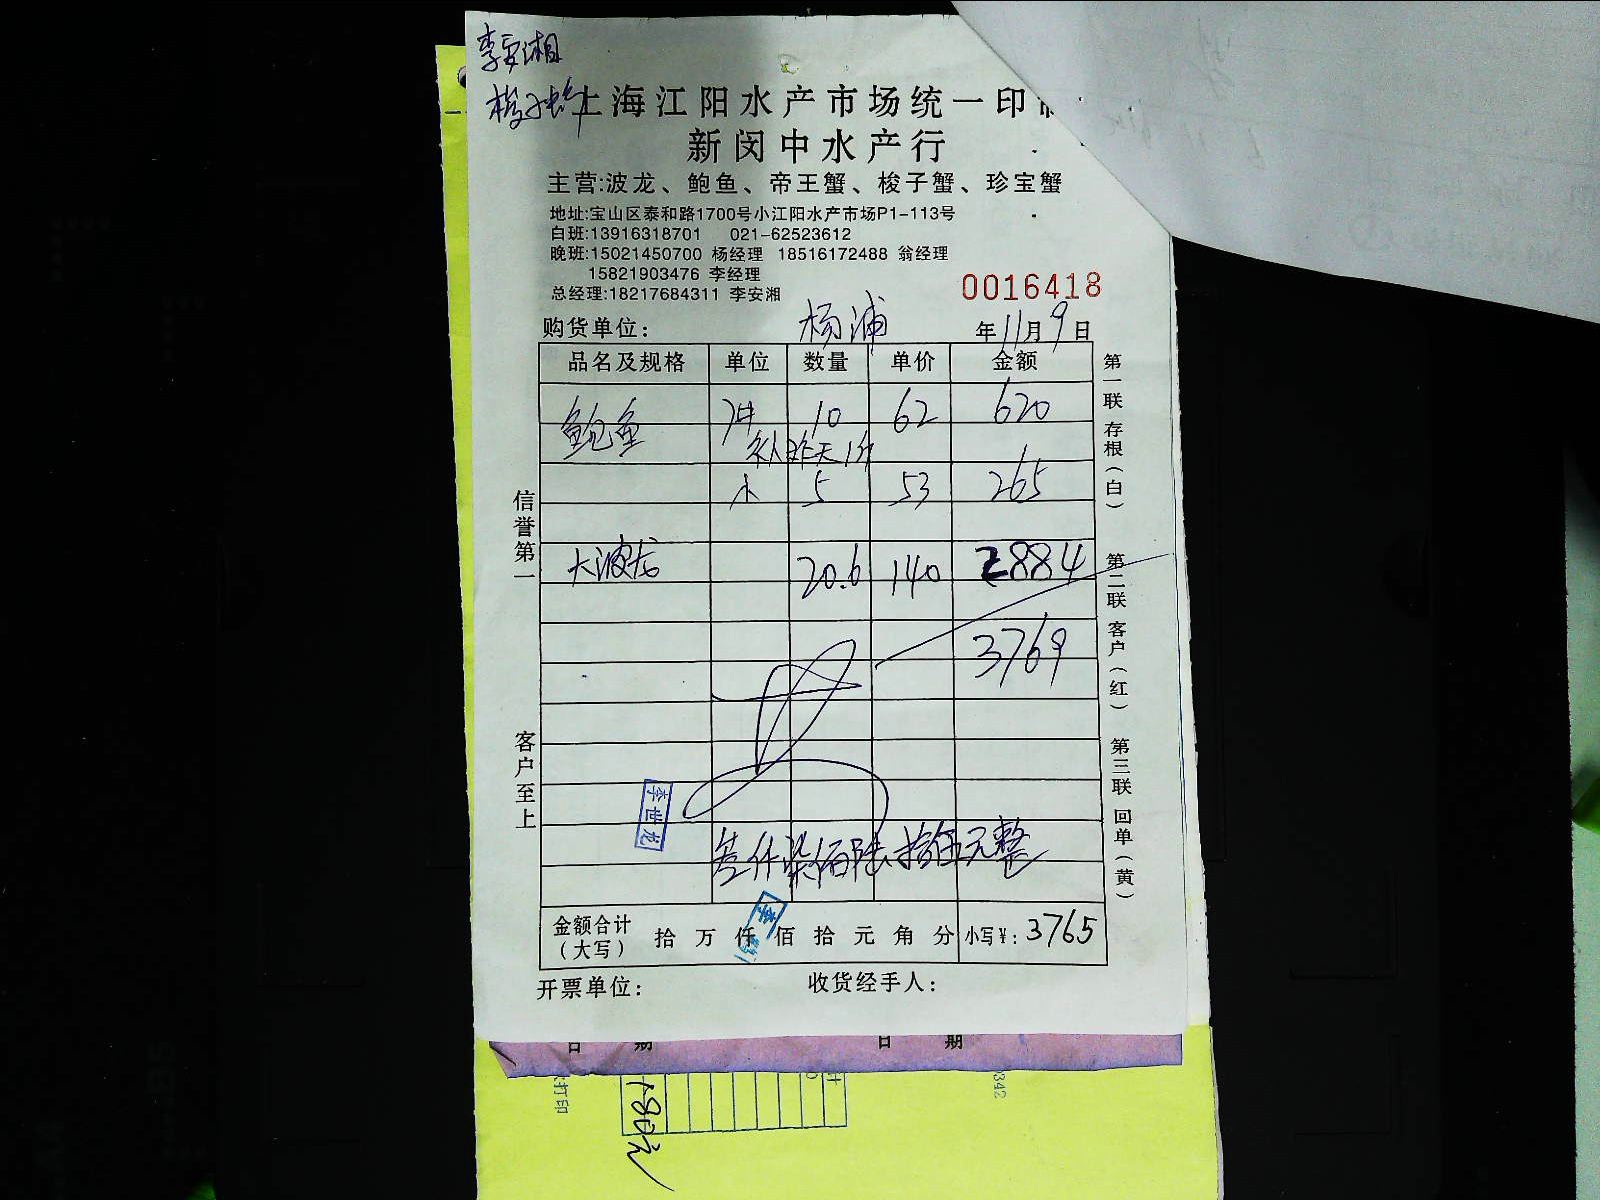 李安湘
梭子蟹
上海江阳水产市场统一印
新闵中水产行
主营:波龙、鲍鱼、帝王蟹、梭子蟹、珍宝蟹
地址:宝山区泰和路1700号小江阳水产市场P1-113号
白班:13916318701 021-62523612
晚班:15021450700 杨经理 18516172488 翁经理
15821903476 李经理
总经理:18217684311 李安湘
0016418
购货单位: 杨浦 年11月9日
品名及规格 单位 数量 单价 金额
鲍鱼 10 62 620
昨天1斤
小 5 53 265
大波龙 20.6 140 2884
3769
李世龙
叁仟柒佰陆拾伍元整
金额合计(大写) 拾 万 仟 佰 拾 元 角 分 小写¥: 3765
开票单位: 收货经手人:
信誉第一
客户至上
第一联 存根(白)
第二联 客户(红)
第三联 回单(黄)
日 期 日 期
打印
计
342
180元